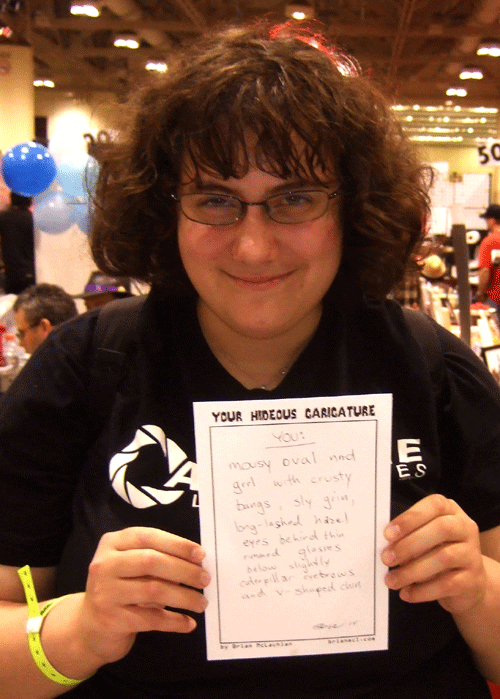 50
YOUR HIDEOUS CARICATURE
YOU:
mousy oval
grrl with crusty
bangs, sly grin,
long-lashed hazel
eyes behind thin
rimmed glasses
below slightly
caterpillar eyebrows
and v-shaped chin
by Brian McLachlan
A E
L ES